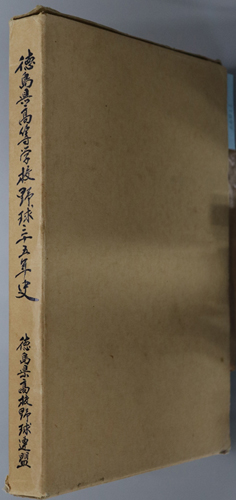 徳島県高等学校野球三十五年史
徳島県高校野球連盟